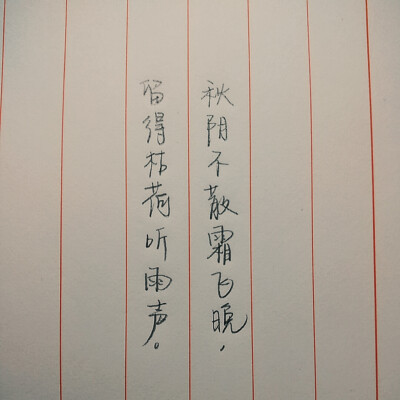 秋阴不散霜飞晚，
留得枯荷听雨声。